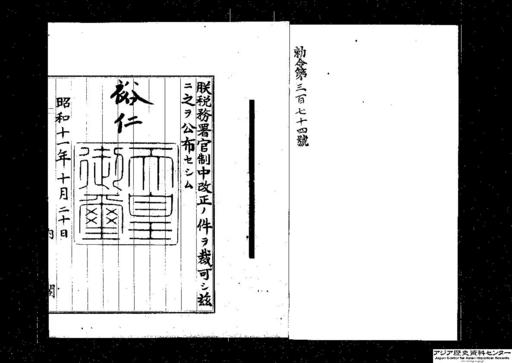 勅令第三百七十四號
朕税務署官制中改正ノ件ヲ裁可シ茲
ニ之ヲ公布セシム
裕仁
天皇
御璽
昭和十一年十月二十日
内閣
アジア歴史資料センター
Japan Center for Asian Historical Records